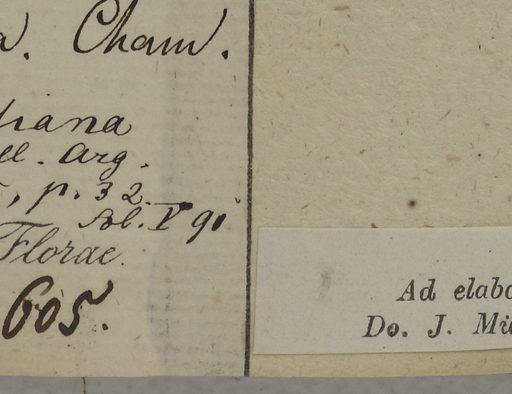 a. Cham.
hiana
ll. Arg.
, p. 32.
Sbl. V 91
Florae.
605.
Ad elabo
Do. J. Mü